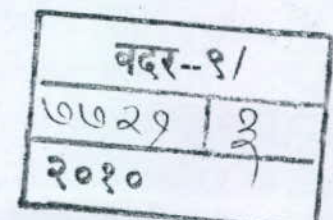 बदर--९/
७७२९ | ३
२०१०